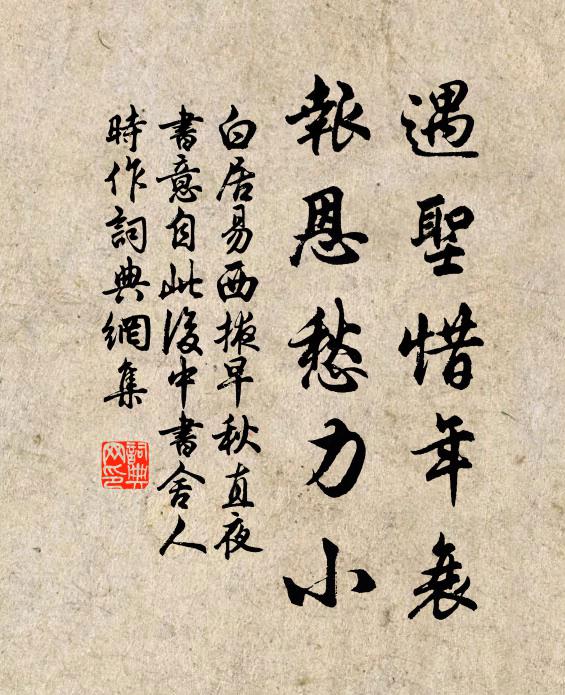 遇聖惜年衰
報恩愁力小
白居易西掖早秋直夜
書意自此後中書舍人
時作詞典網集
詞典
网印